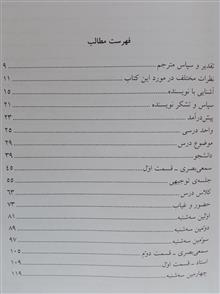 فهرست مطالب
تقدیر و سپاس مترجم ۹
نظرات مختلف در مورد این کتاب ۱۱
آشنایی با نویسنده ۱۵
سپاس و تشکر نویسنده ۲۱
پیش‌درآمد ۲۳
واحد درسی ۲۵
موضوع درس ۲۹
دانشجو ۳۹
سمعی‌بصری ـ قسمت اول ۴۵
جلسه‌ی توجیهی ۵۵
کلاس درس ۶۳
حضور و غیاب ۷۳
اولین سه‌شنبه ۸۱
دومین سه‌شنبه ۸۹
سومین سه‌شنبه ۹۷
سمعی‌بصری ـ قسمت دوم ۱۰۵
استاد ـ قسمت اول ۱۰۹
چهارمین سه‌شنبه ۱۱۹